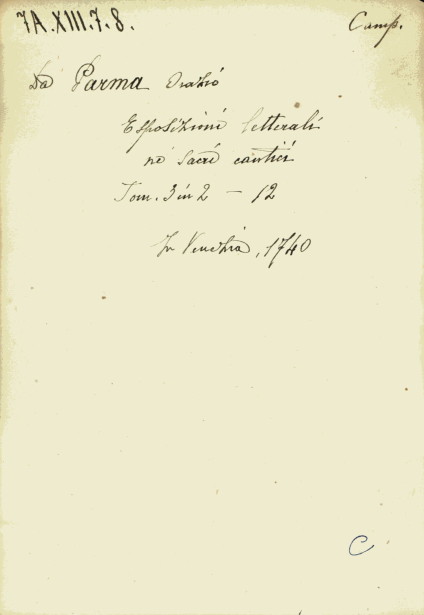 7A.XIII.7.8. Camp.
Da Parma Orazio
Esposizioni letterali
ne' sacri cantici
Tom. 3 in 2 — 12
In Venezia, 1740
C